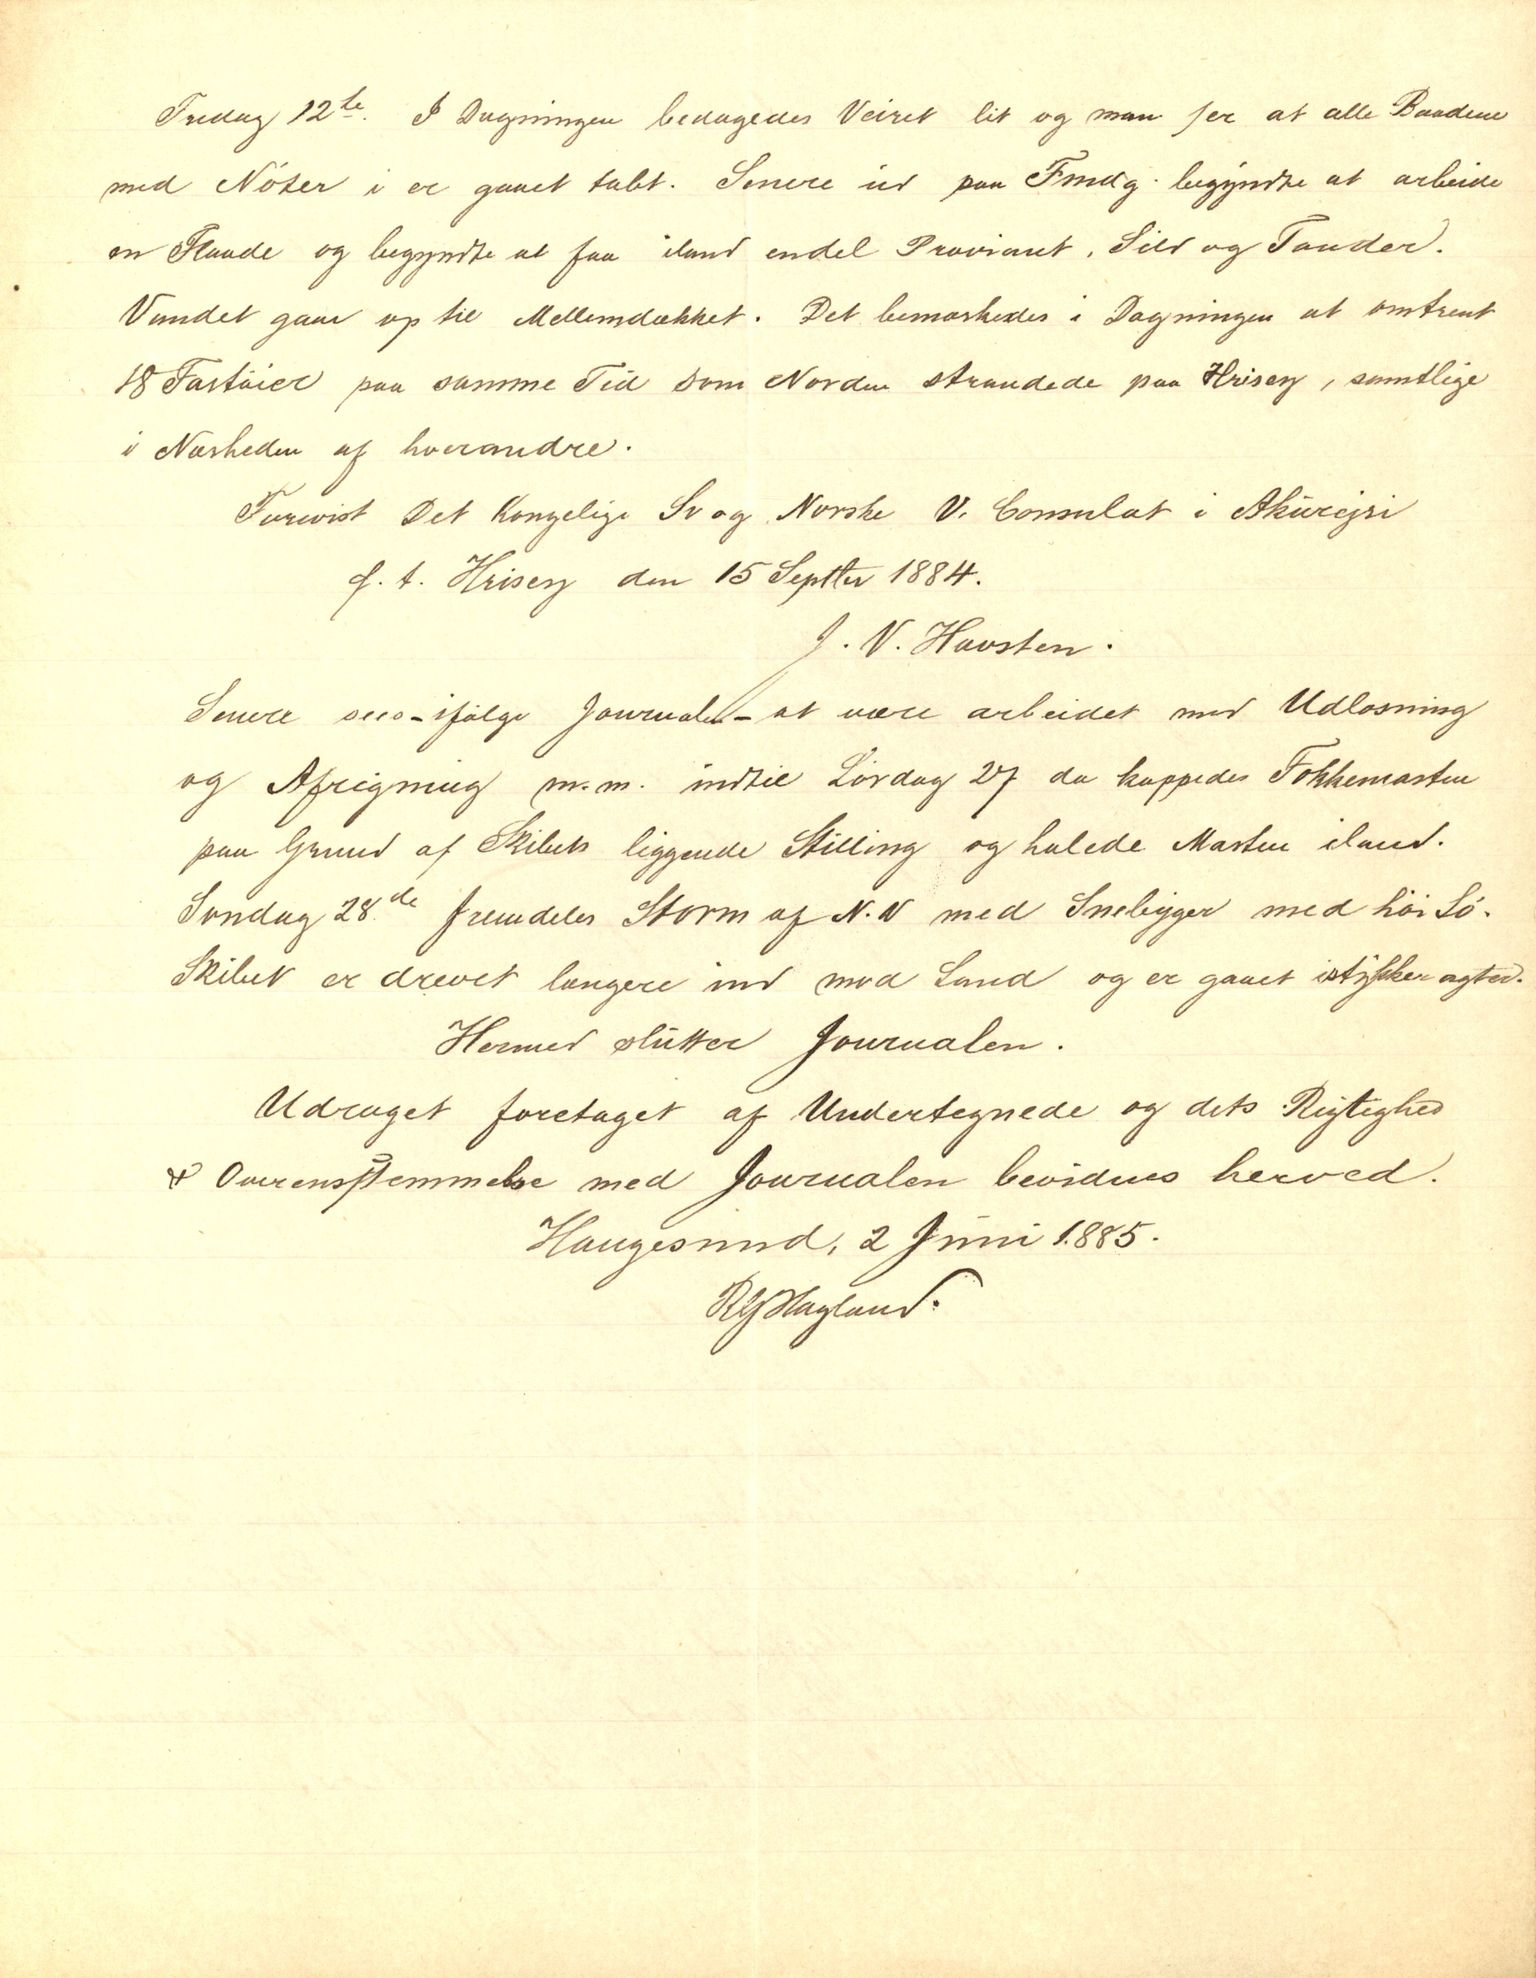 Fredag 12te. I Dagningen bedagedes Veiret lit og man ser at alle Baadene
med Nöter i er gaaet tabt. Senere ud paa Fmdg. begyndte at arbeide
en Flaade og begyndte at faa iland endel Proviant, Sild og Tønder.
Vandet gaar op til Mellemdækket. Det bemærkedes i Dagningen at omtrent
18 Fartöier paa samme Tid som Norden strandede paa Hrisey, samtlige
i Nærheden af hverandre.
Forevist Det Kongelige Sv og Norske V. Consulat i Aküreyri
p. t. Hrisey den 15 Septbr 1884.
J. V. Havsten.
Senere sees - ifölge Journalen - at være arbeidet med Udlosning
og Afrigning m.m. indtil Lördag 27 da kappedes Fokkemasten
paa Grund af Skibets liggende Stilling og halede Masten iland.
Söndag 28de fremdeles Storm af N.N med Snebyger med höi Sö.
Skibet er drevet længere ind mod Land og er gaaet istykker agter.
Hermed slütter Journalen.
Udraget foretaget af Undertegnede og dets Rigtighed
& Overensstemmelse med Journalen bevidnes herved.
Haugesund, 2 Juni 1885.
Hagland.